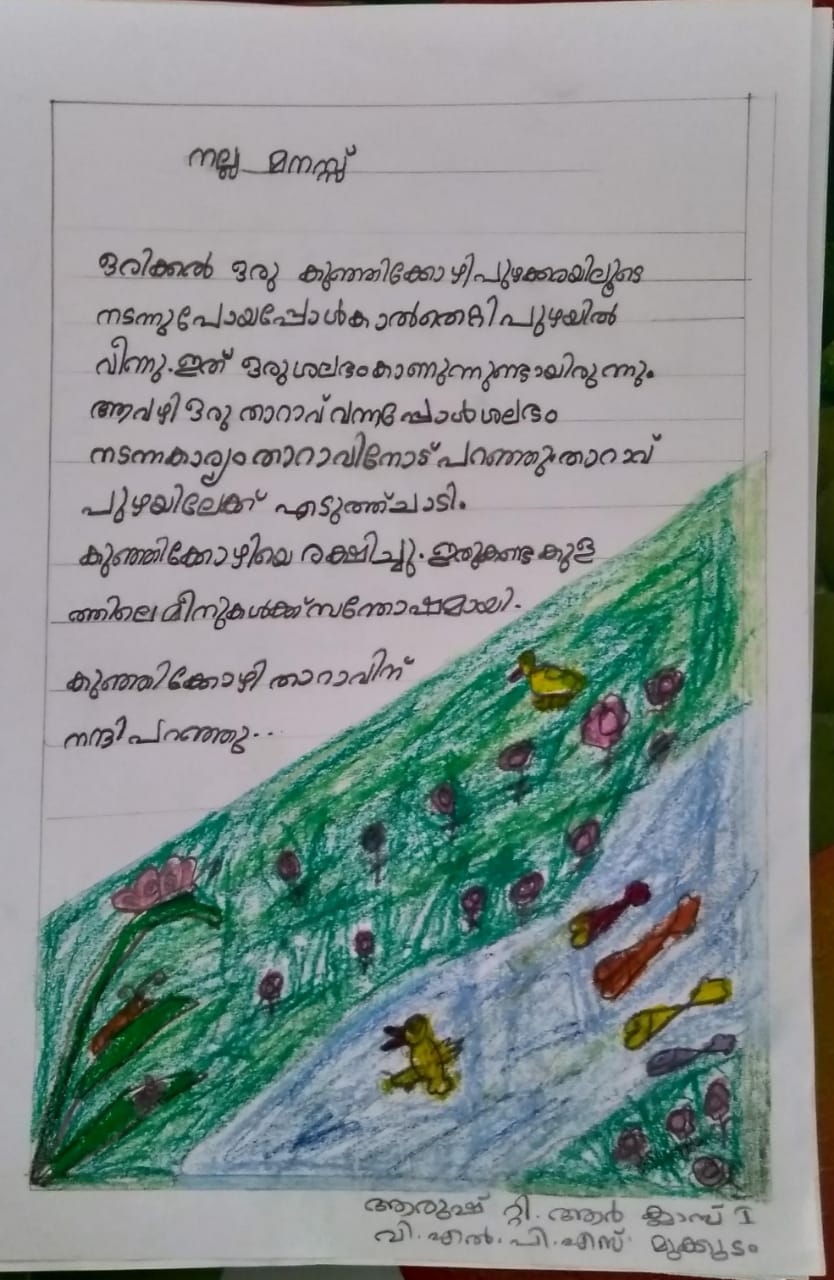 നല്ല മനസ്സ്
ഒരിക്കൽ ഒരു കുഞ്ഞിക്കോഴി പുഴക്കരയിലൂടെ
നടന്നുപോയപ്പോൾ കാൽതെറ്റി പുഴയിൽ
വീന്നു. ഇത് ഒരു ശലഭം കാണുന്നുണ്ടായിരുന്നു.
ആവഴി ഒരു താറാവ് വന്നപ്പോൾ ശലഭം
നടന്നകാര്യം താറാവിനോട് പറഞ്ഞു. താറാവ്
പുഴയിലേക്ക് എടുത്ത്ചാടി.
കുഞ്ഞിക്കോഴിയെ രക്ഷിച്ചു. ഇതുകണ്ട കുള
ത്തിലെ മീനുകൾക്ക് സന്തോഷമായി.
കുഞ്ഞിക്കോഴി താറാവിന്
നന്ദി പറഞ്ഞു...
ആരുഷ് റ്റി. ആർ ക്ലാസ് I
വി. എൽ. പി. എസ് മുക്കുടം